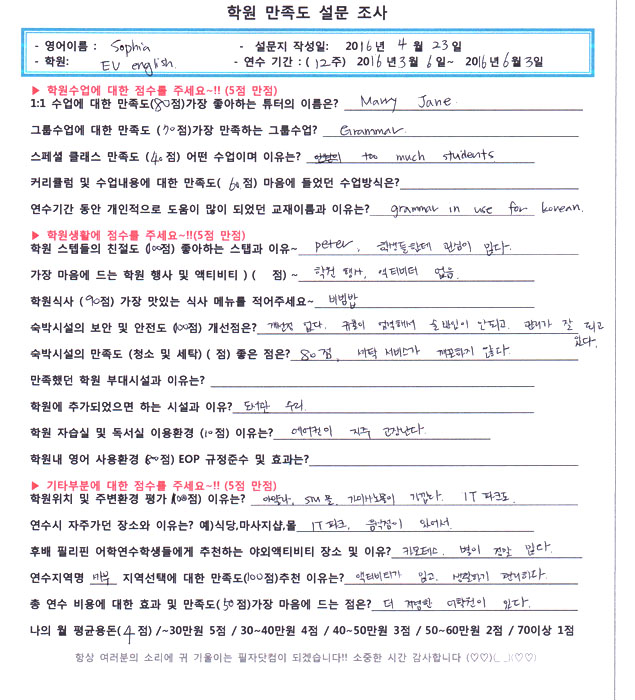 학원 만족도 설문 조사
- 영어이름 : Sophia - 설문지 작성일: 2016년 4월 23일
- 학원: EV english. - 연수 기간 : (12주) 2016년 3월 6일~ 2016년 6월 3일
▶ 학원수업에 대한 점수를 주세요~!! (5점 만점)
1:1 수업에 대한 만족도(80점)가장 좋아하는 튜터의 이름은? Marry Jane.
그룹수업에 대한 만족도 (70점)가장 만족하는 그룹수업? Grammar.
스페셜 클래스 만족도 (40점) 어떤 수업이며 이유는? too much students
커리큘럼 및 수업내용에 대한 만족도( 60점) 마음에 들었던 수업방식은?
연수기간 동안 개인적으로 도움이 많이 되었던 교재이름과 이유는? grammar in use for korean.
▶ 학원생활에 점수를 주세요~!!(5점 만점)
학원 스텝들의 친절도 (100점) 좋아하는 스탭과 이유~ peter, 학생들한테 관심이 많다.
가장 마음에 드는 학원 행사 및 액티비티 ) ( 점) ~ 학원 행사, 액티비티 없음.
학원식사 (90점) 가장 맛있는 식사 메뉴를 적어주세요~ 비빔밥
숙박시설의 보안 및 안전도 (100점) 개선점은? 개선점 없다. 규율이 엄격해서 출입이 안되고, 관리가 잘 되고 있다.
숙박시설의 만족도 (청소 및 세탁) ( 점) 좋은 점은? 80점, 세탁 서비스가 깨끗하지 않다.
만족했던 학원 부대시설과 이유는?
학원에 추가되었으면 하는 시설과 이유? 수리.
학원 자습실 및 독서실 이용환경 (10점) 이유는? 에어컨이 자주 고장난다.
학원내 영어 사용환경 ( 점) EOP 규정준수 및 효과는?
▶ 기타부분에 대한 점수를 주세요~!! (5점 만점)
학원위치 및 주변환경 평가 (100점) 이유는? 아얄라, sm 몰, 가이사노몰이 가깝다. IT 파크도.
연수시 자주가던 장소와 이유는? 예)식당,마사지샵,몰 IT 파크, 음식점이 있어서.
후배 필리핀 어학연수학생들에게 추천하는 야외액티비티 장소 및 이유? 카모테스, 별이 정말 많다.
연수지역명 세부 지역선택에 대한 만족도(100점)추천 이유는? 액티비티가 많고, 생활하기 편리하다.
총 연수 비용에 대한 효과 및 만족도(50점)가장 마음에 드는 점은? 더 저렴한 어학원이 있다.
나의 월 평균용돈(4점) /~30만원 5점 / 30~40만원 4점 / 40~50만원 3점 / 50~60만원 2점 / 70이상 1점
항상 여러분의 소리에 귀 기울이는 필자닷컴이 되겠습니다!! 소중한 시간 감사합니다 (♡♡)(_ _)(♡♡)